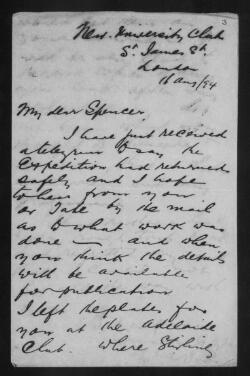 3
New University Club
St. James St.
London
16 Aug/94
My dear Spencer,
I have just received
a telegram to say the
Expedition had returned
safely and I hope
to hear from you
or Tate by the mail
as to what work was
done — and when
you think the details
will be available
for publication
I left the plates for
you at the Adelaide
Club. where Stirling